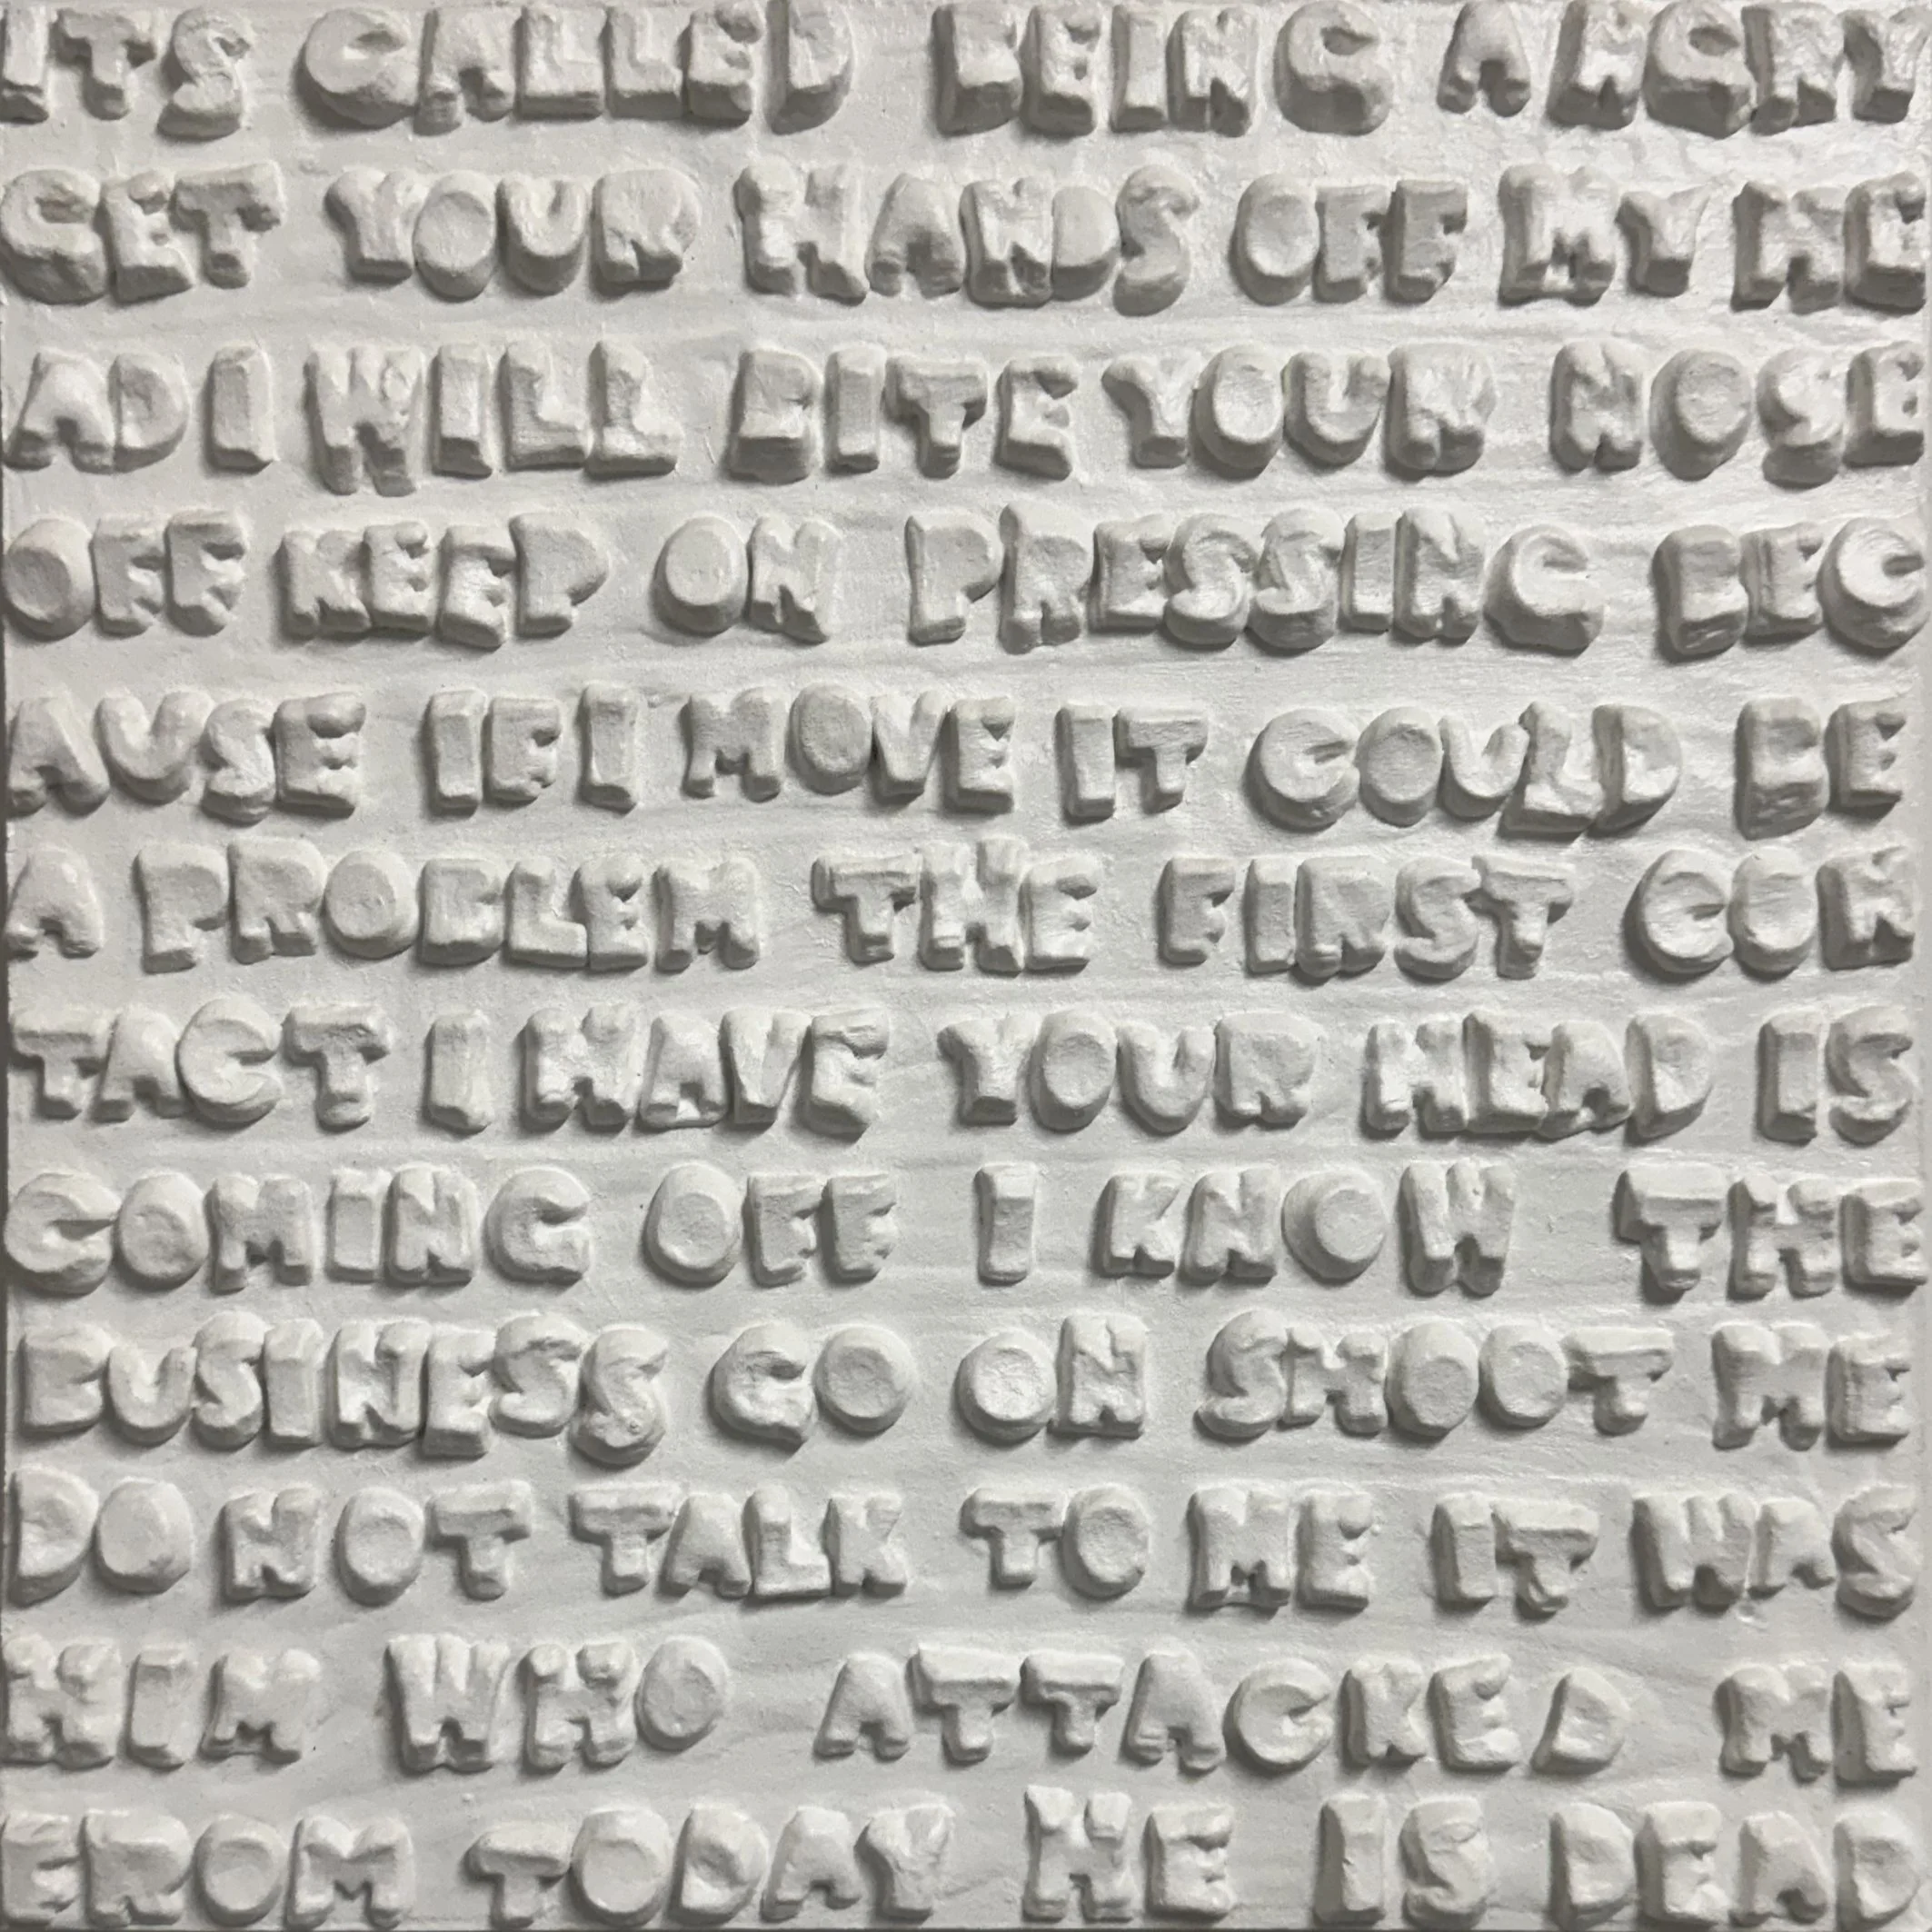 ITS CALLED BEING ANGRY
GET YOUR HANDS OFF MY HE
AD I WILL BITE YOUR NOSE
OFF KEEP ON PRESSING BEC
AUSE IF I MOVE IT COULD BE
A PROBLEM THE FIRST CON
TACT I HAVE YOUR HEAD IS
COMING OFF I KNOW THE
BUSINESS GO ON SHOOT ME
DO NOT TALK TO ME IT WAS
HIM WHO ATTACKED ME
FROM TODAY HE IS DEAD